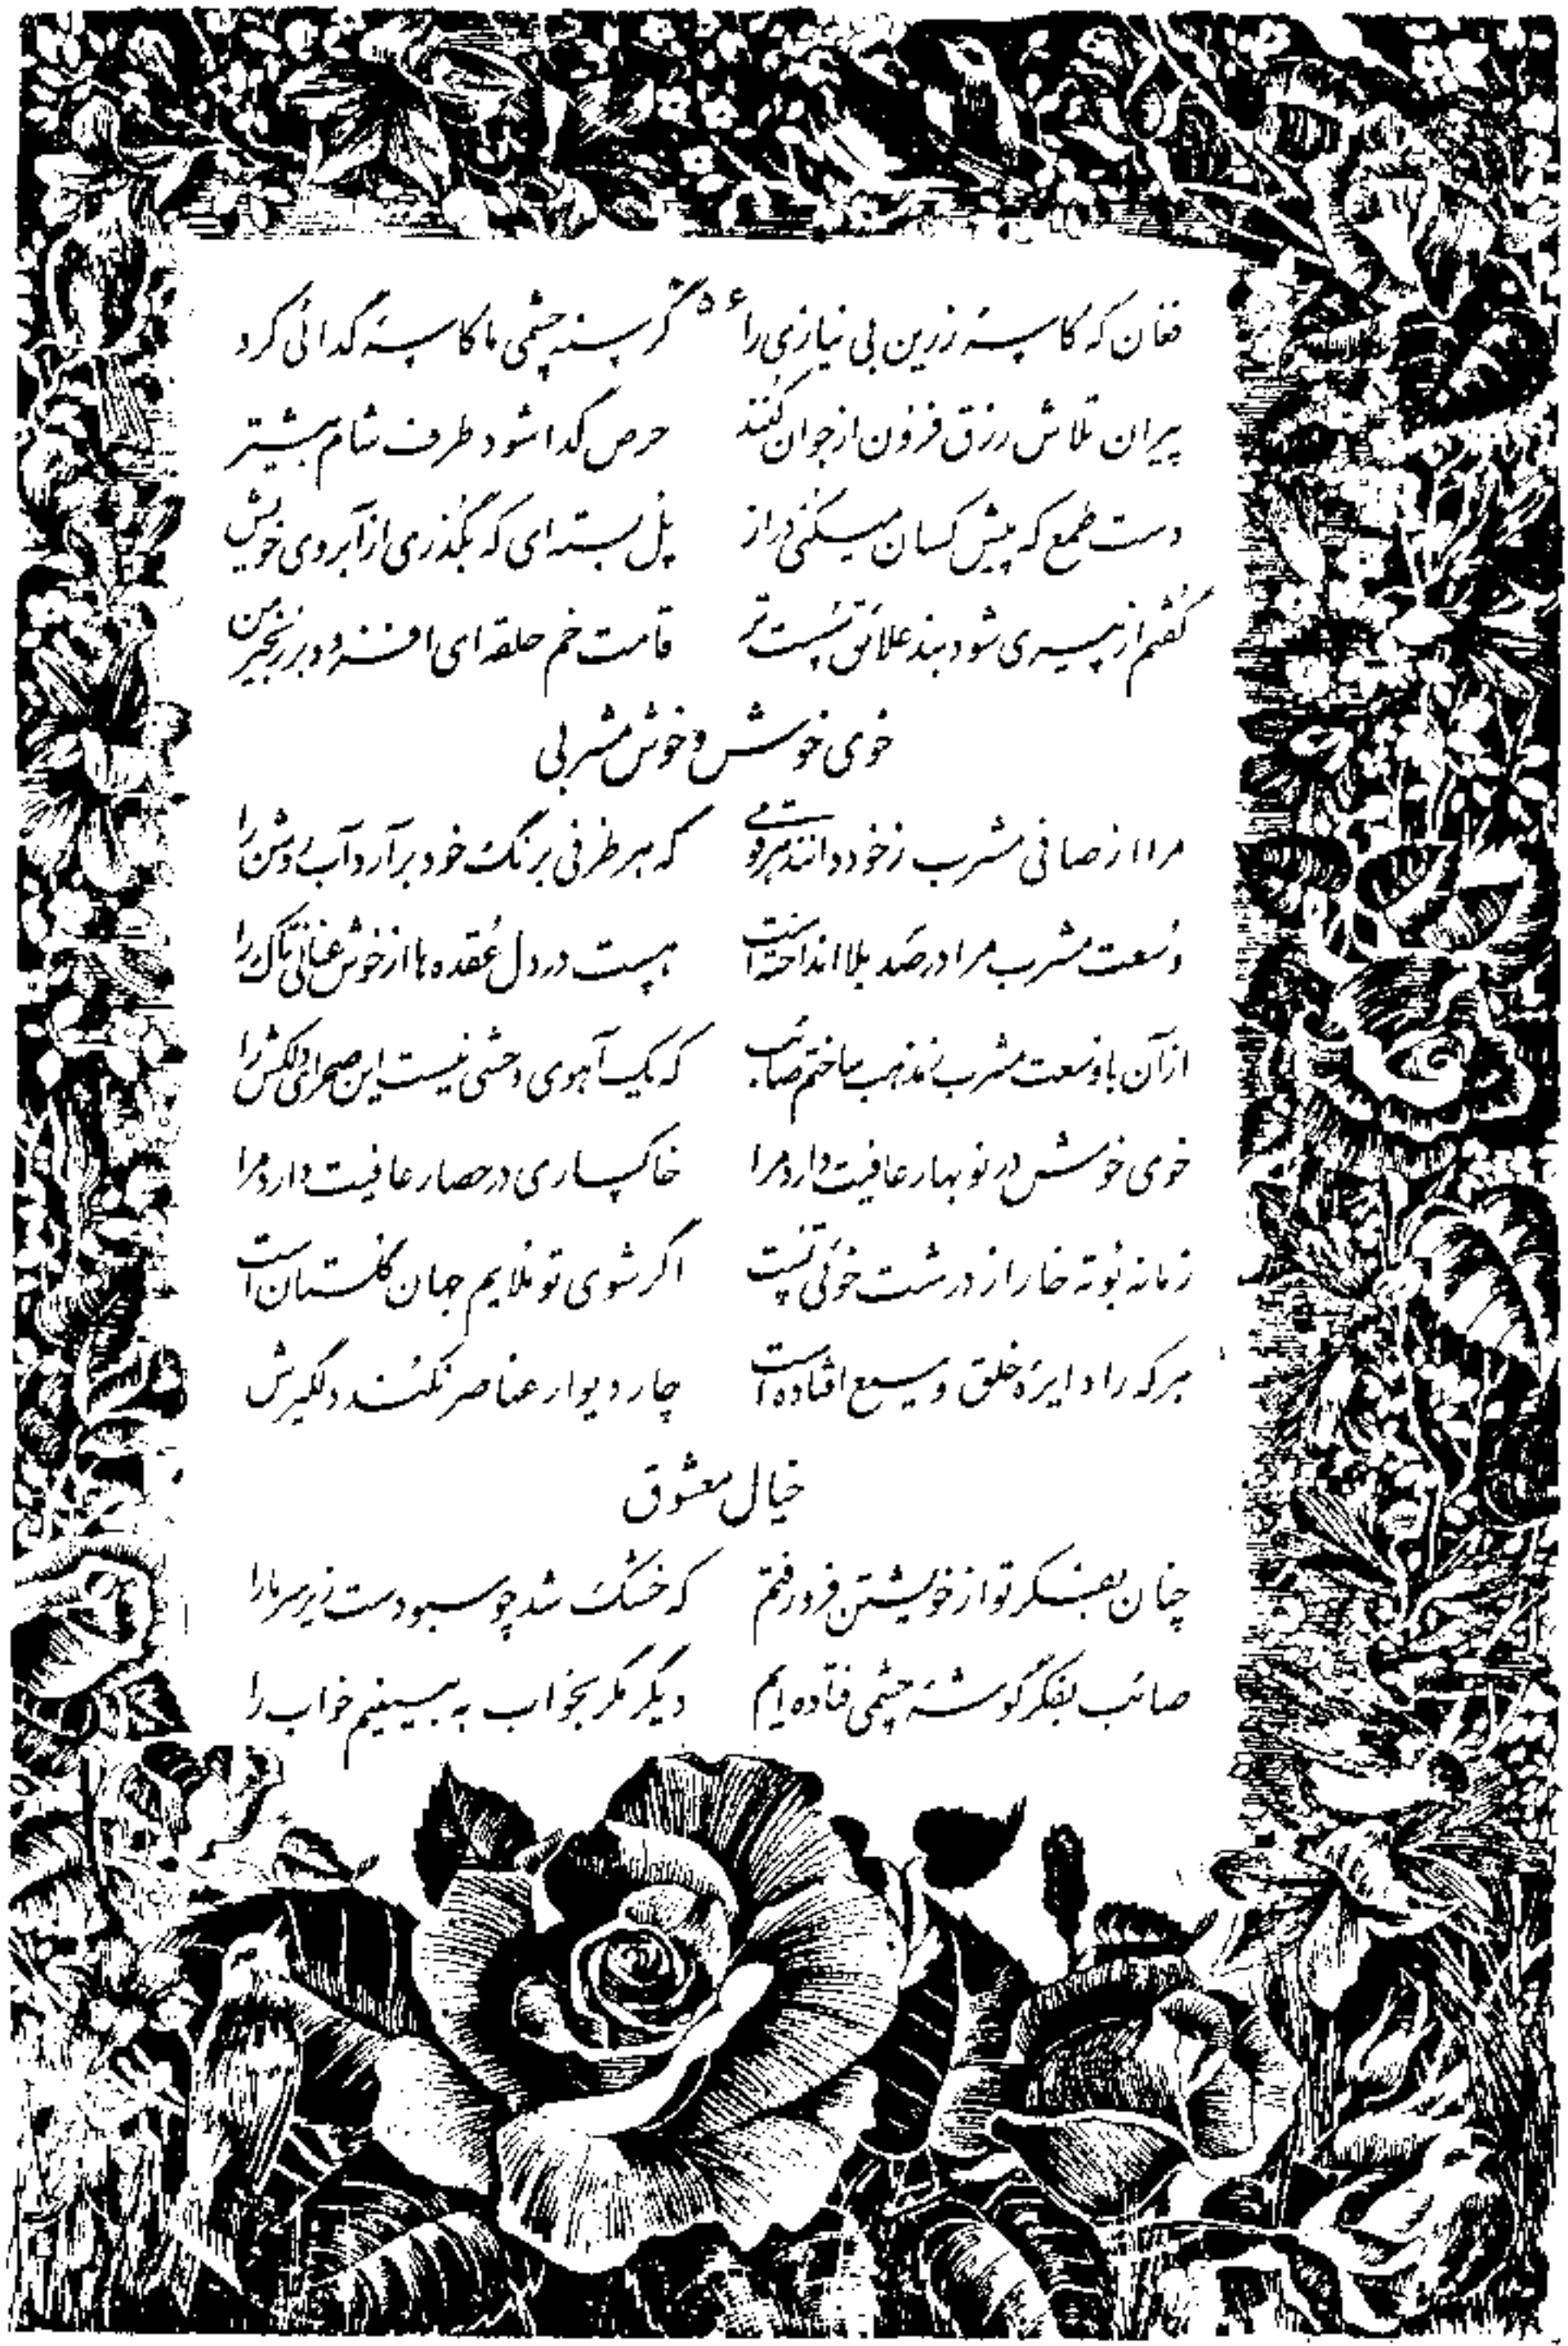 فغان که کاسهٔ زرین بی نیازی را ۵۶ گرسنه چشمی ما کاسهٔ گدائی کرد
پیران تلاش رزق فزون از جوان کُنند حرص گدا شود طرف شام بیشتر
دست طمع که پیش کسان میکنی دراز پل بسته‌ای که بگذری از آبروی خویش
گفتم از پیری شود بند علائق سُست‌تر قامت خم حلقه‌ای افزود بر زنجیر من
خوی خوش و خوش مشربی
مرا از صافی مشرب ز خود دانند هر قومی که هر ظرفی برنگ خود برآرد آب روشن را
وُسعت مشرب مرا در صَد بلا انداخته است هست در دل عُقده‌ها از خوش عنانی تاک را
از آن با وُسعت مشرب ز مذهب ساختم صائب که یک آهوی وحشی نیست این صحرای دلکش را
خوی خوش در نوبهار عافیت دارد مرا خاکساری در حصار عافیت دارد مرا
زمانه بُوته خار از درشت خوئی تُست اگر شوی تو مُلایم جهان گلستان است
هر که را دایرهٔ خلق وسیع افتاده است چار دیوار عناصر نکُند دلگیرش
خیال معشوق
چنان بفکر تو از خویشتن فرو رفتم که خشک شد چو سبو دست زیر سر ما را
صائب بفکر گوشهٔ چشمی فتاده‌ایم دیگر مگر بخواب به بینیم خواب را